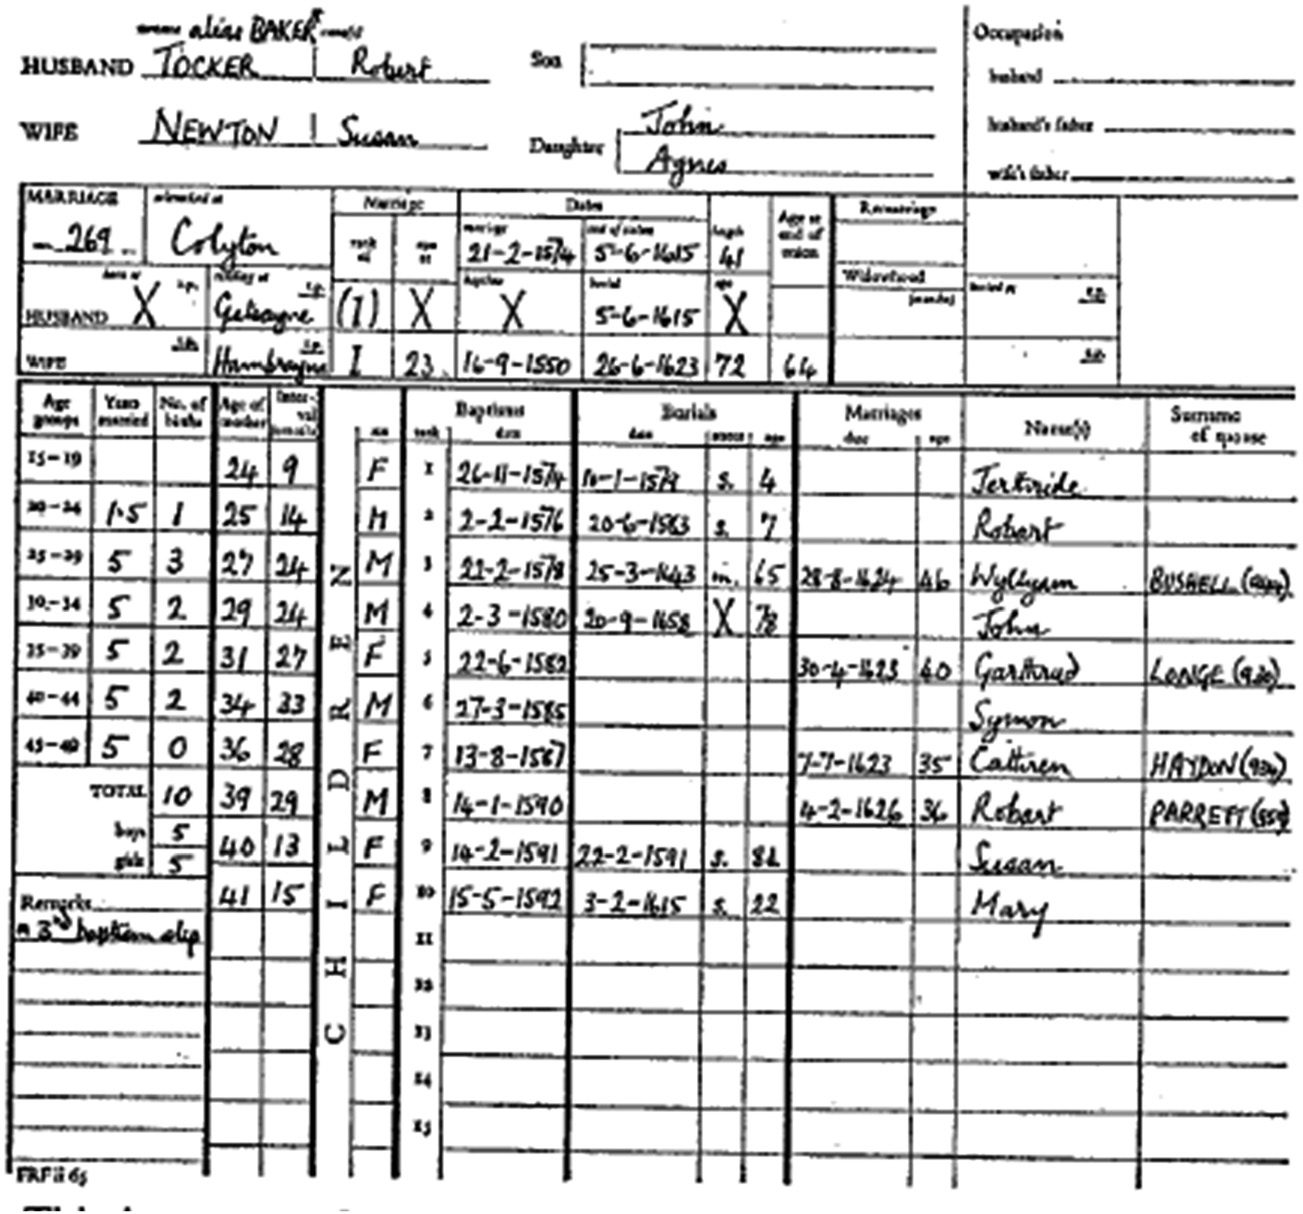 alias BAKER
HUSBAND TOCKER Robert Son
WIFE NEWTON Susan Daughter John
Agnes
Occupation
husband
husband's father
wife's father
MARRIAGE Marriage Dates Age at end of union Remarriage
269 Colyton rank age marriage end of union length
21-2-1574 5-6-1615 41
Widowhood (months)
baptism burial age
HUSBAND X (1) X X 5-6-1615 X
WIFE Hambrayne 1 23 16-9-1550 26-6-1623 72 64
Age groups Years married No. of births Age of mother Interval (months) CHILDREN sex rank Baptisms date Burials date status age Marriages date age Name(s) Surname of spouse
15-19 24 9 F 1 26-11-1574 s. 4
20-24 1.5 1 25 14 M 2 2-2-1576 s. 7 Robart
25-29 5 3 27 24 M 3 25-3-1643 m. 65 28-8-1624 46 Wyllyam BUSHELL
30-34 5 2 29 24 M 4 2-3-1580 20-9-1658 X 78 John
35-39 5 2 31 27 F 5 22-6-1582 30-4-1623 40 Garthrud LONGE
40-44 5 2 34 33 M 6 27-3-1585 Symon
45-49 5 0 36 28 F 7 13-8-1587 7-7-1623 35 Cattiren HAYDON
TOTAL 10 39 29 M 8 14-1-1590 4-2-1626 36 Robart PARRETT
boys 5 40 13 F 9 14-2-1591 22-2-1591 s. Susan
girls 5
41 15 F 10 15-5-1592 3-2-1615 s. 22 Mary
Remarks
baptism slip
11
12
13
14
15
FRF ii 65